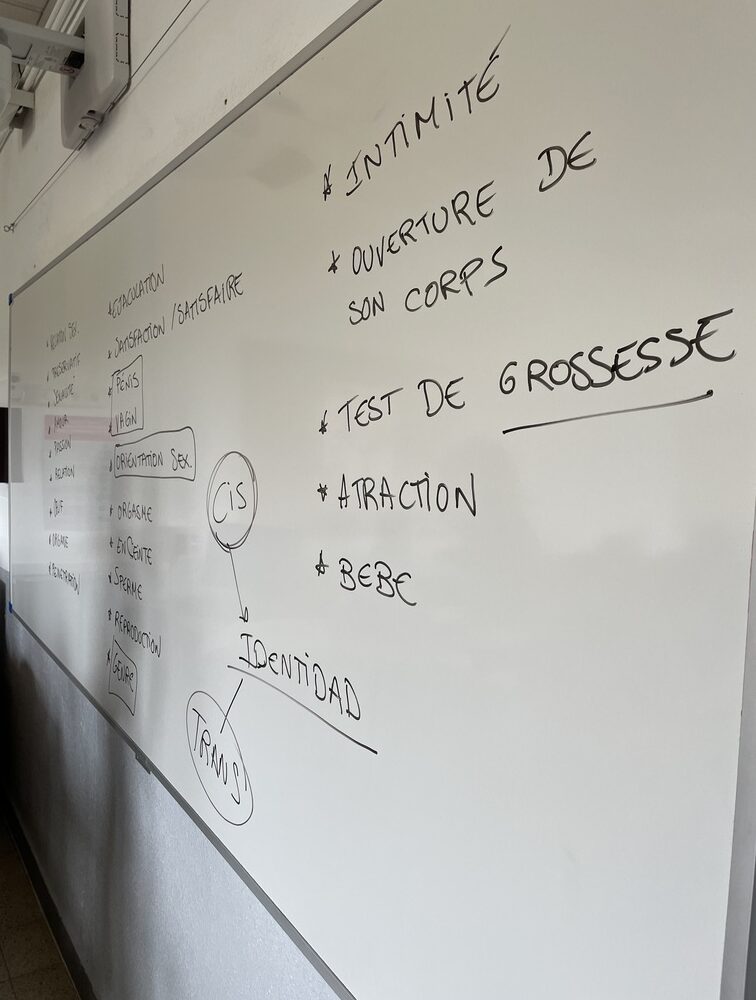 * RELATION SEX.
* PRESERVATIF
* SEXUALITÉ
* AMOUR
* PASSION
* RELATION
* OEUF
* ORGANE
* PENETRATION
* EJACULATION
* SATISFACTION / SATISFAIRE
* PENIS
* VAGIN
* ORIENTATION SEX.
* ORGASME
* ENCEINTE
* SPERME
* REPRODUCTION
* GENRE
CIS
IDENTIDAD
TRANS
* INTIMITÉ
* OUVERTURE DE
SON CORPS
* TEST DE GROSSESSE
* ATRACTION
* BEBE